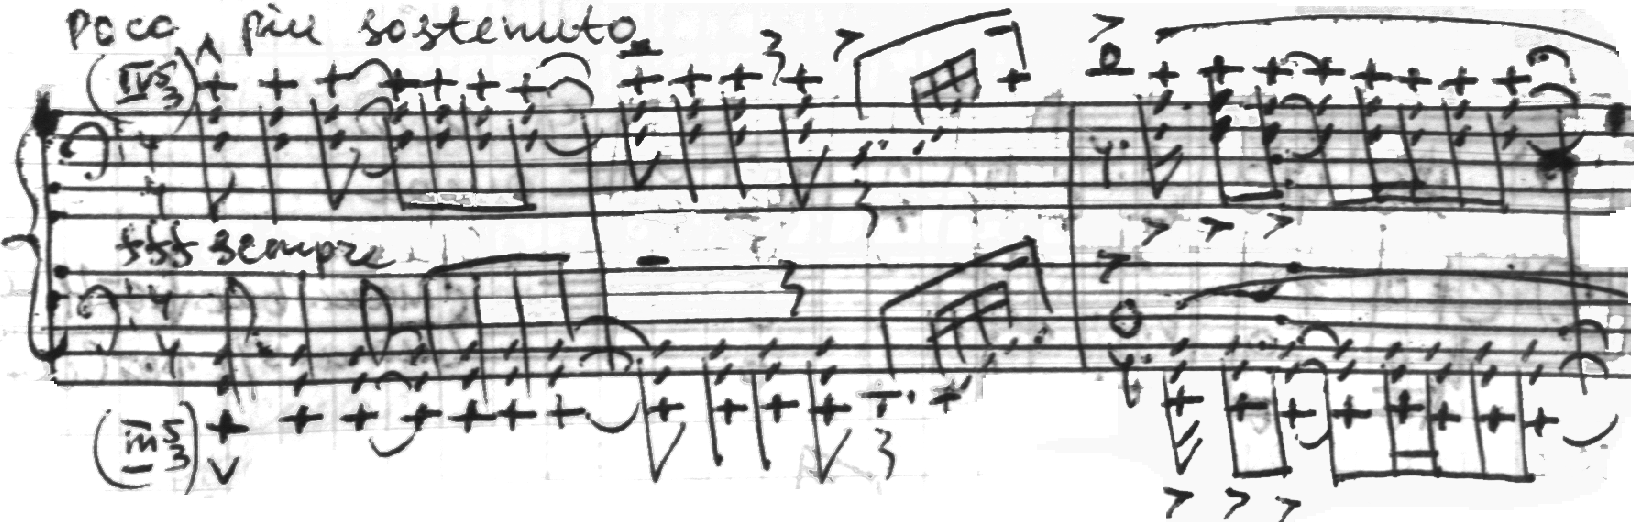 poco più sostenuto
(IV 5/3)
fff sempre
(III 5/3)